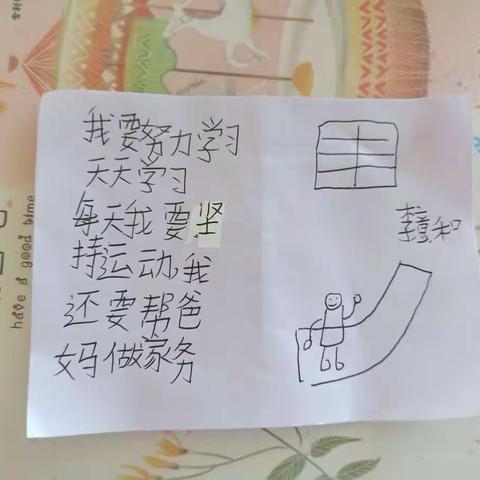 我要努力学习
天天学习
每天我要坚
持运动,我
还要帮爸
妈做家务
have a good time